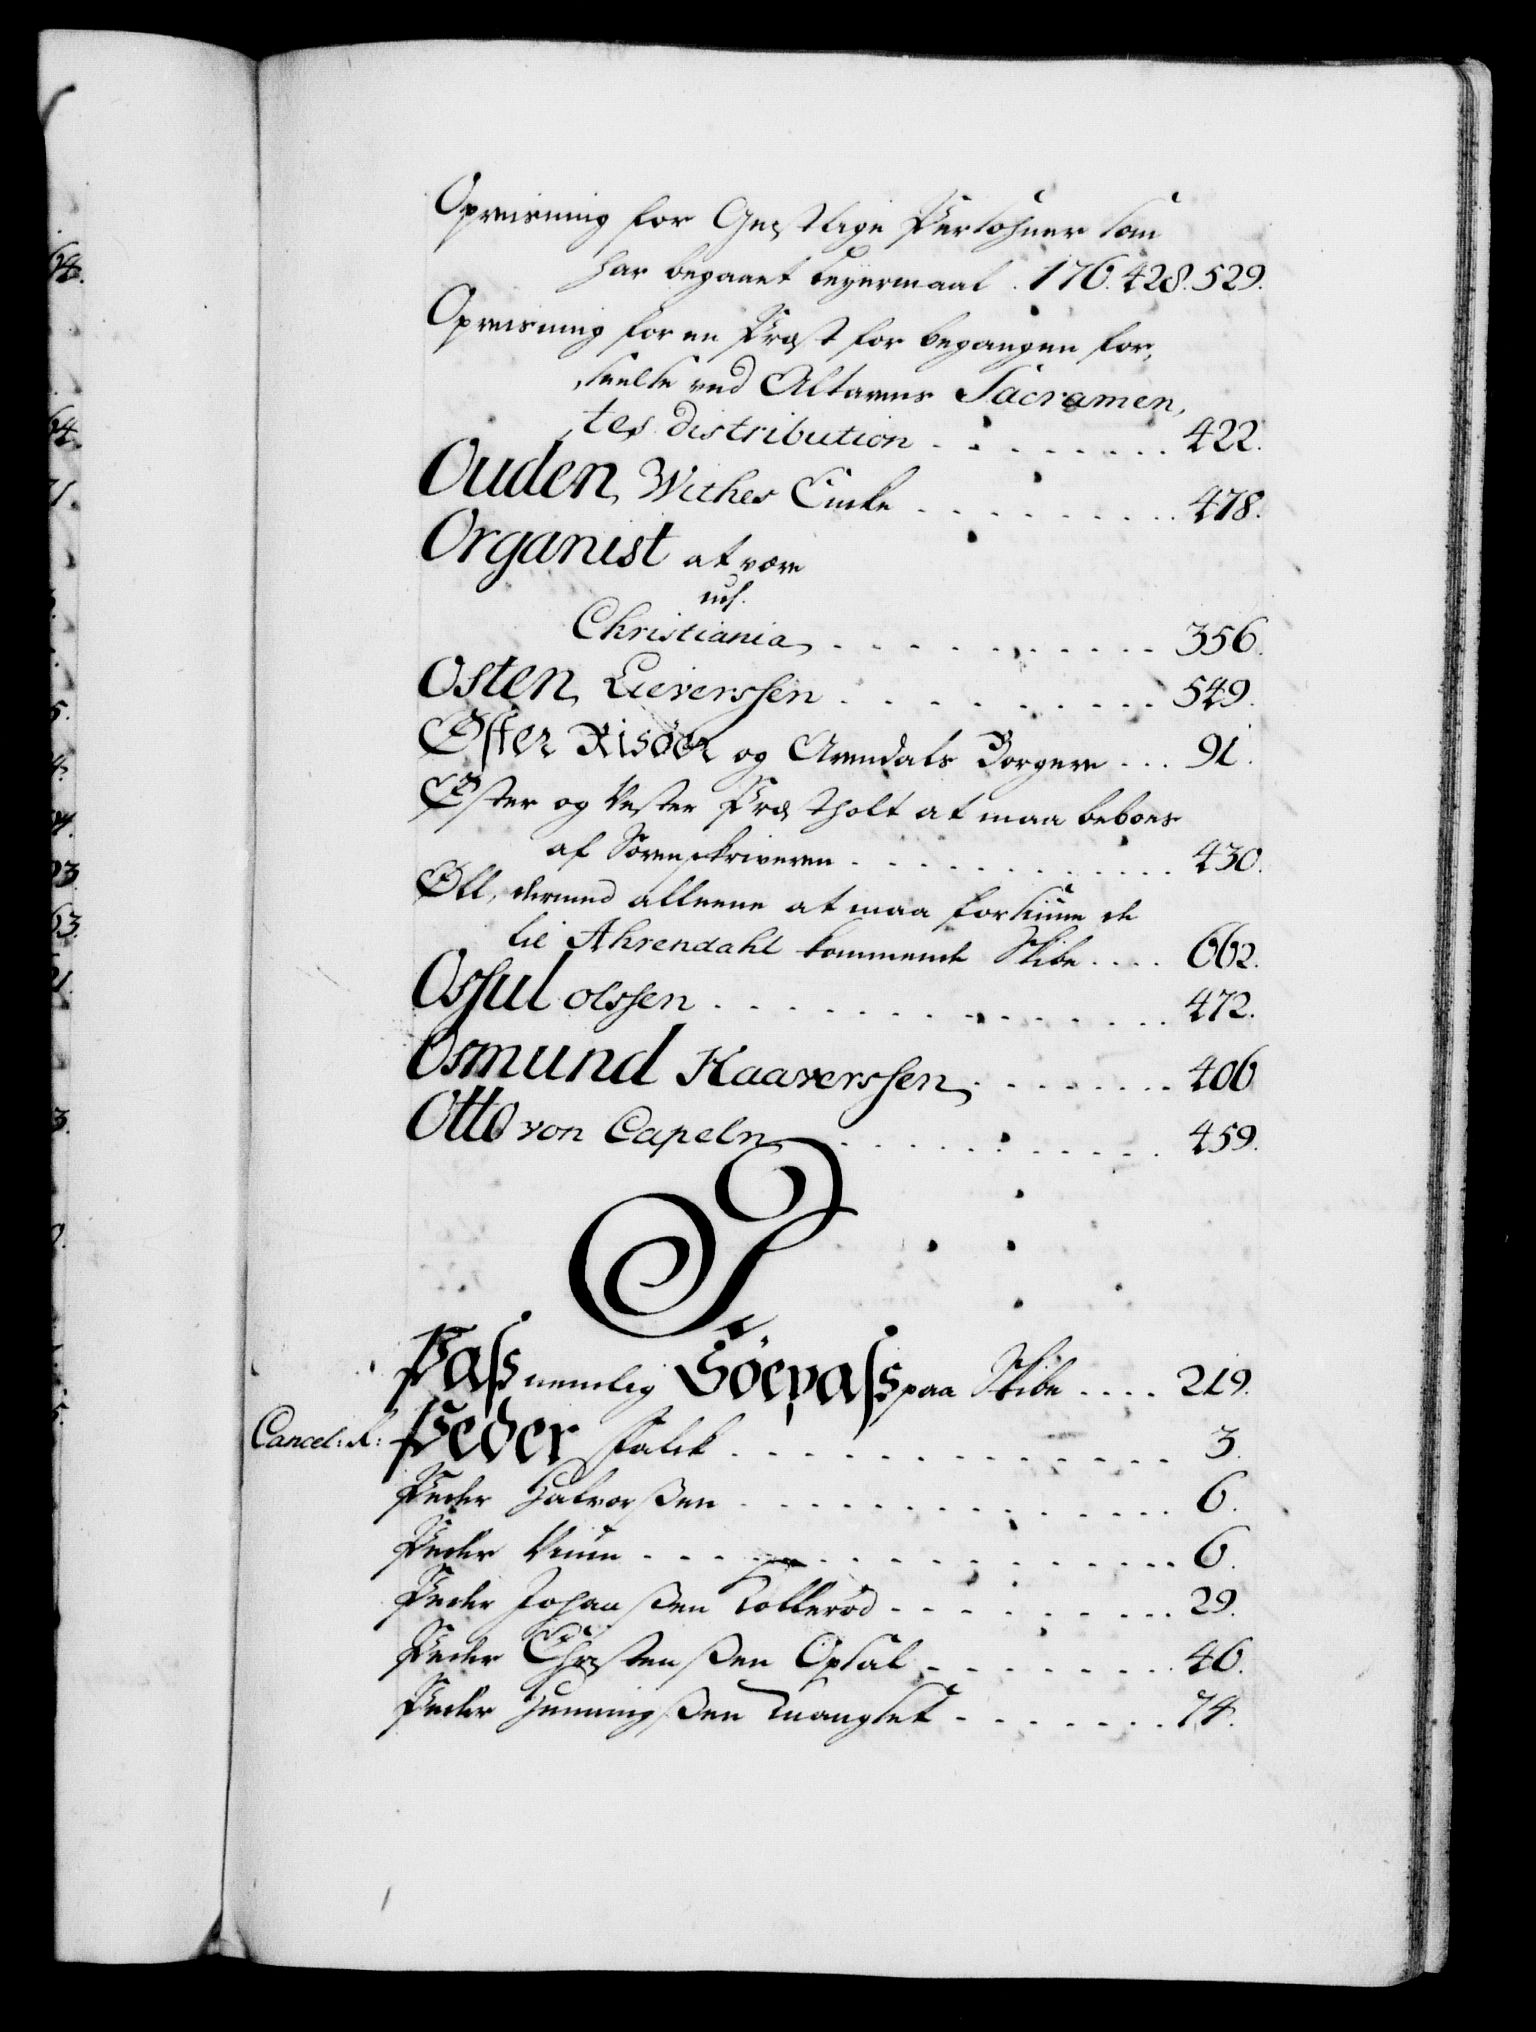 Opreisning for Geistlige Persohner som
har begaaet Leyermaal . 176. 428. 529.
Opreisning for en Præst for begangen for,
,seelse ved Altarens Sacramen,
,tes distribution . . . . . . . . 422.
Ouden, Withes Enke . . . . . . . . 478.
Organist at være
udj.
Christiania, . . . . . . . . . . 356.
Osten, Lieverssen . . . . . . . . . 549.
Öster Risöer og Arendals Borgere . . . 91.
Öster og Vester Præstholt at maa beboes
af Sorenskriveren . . . . . . . . . . 430.
Öll, dermed alleene at maa forsiune de
til Ahrendahl kommende Skibe . . . . 662.
Ossul olssen . . . . . . . . . . . . . 472.
Osmund Kaaverssen, . . . . . . . . 406
Otto von Capeln . . . . . . . . . . 459.
P.
Pass nemlig Söepass paa Skibe . . . . 219.
Cancel: R: Peder Falck . . . . . . . . . . . . . 3.
Peder Halvorßen . . . . . . . . . . . . . 6.
Peder . . . . . . . . . . . . . . . . 6.
Peder Johanßen Tolleröd . . . . . . . . . 29.
Peder Christenßen Opsal . . . . . . . . 46.
Peder Henningßen . . . . . . . 74.